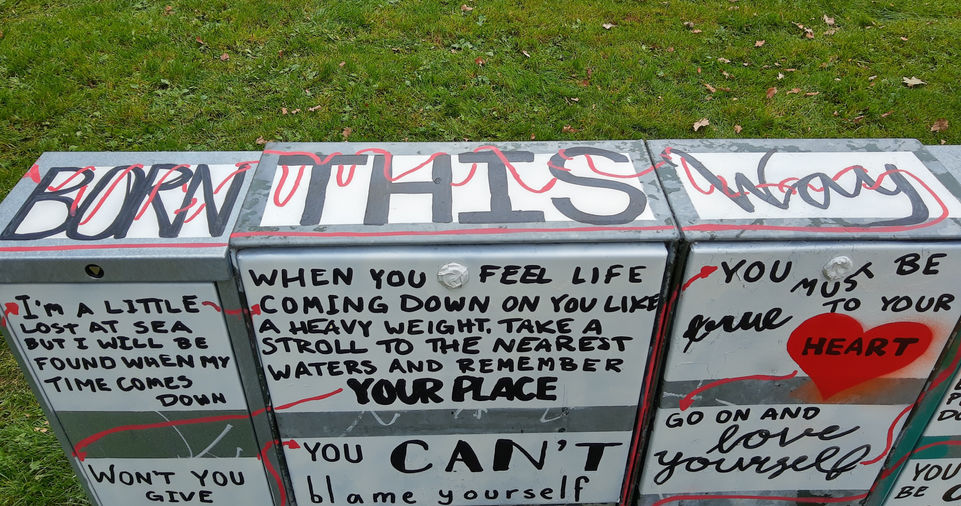 BORN THIS Way
I'M A LITTLE
LOST AT SEA
BUT I WILL BE
FOUND WHEN MY
TIME COMES
DOWN
WONT YOU
GIVE
WHEN YOU FEEL LIFE
COMING DOWN ON YOU LIKE
A HEAVY WEIGHT, TAKE A
STROLL TO THE NEAREST
WATERS AND REMEMBER
YOUR PLACE
YOU CAN'T
blame yourself
YOU MUST BE
true TO YOUR
HEART
GO ON AND
love
yourself
YOU
BE